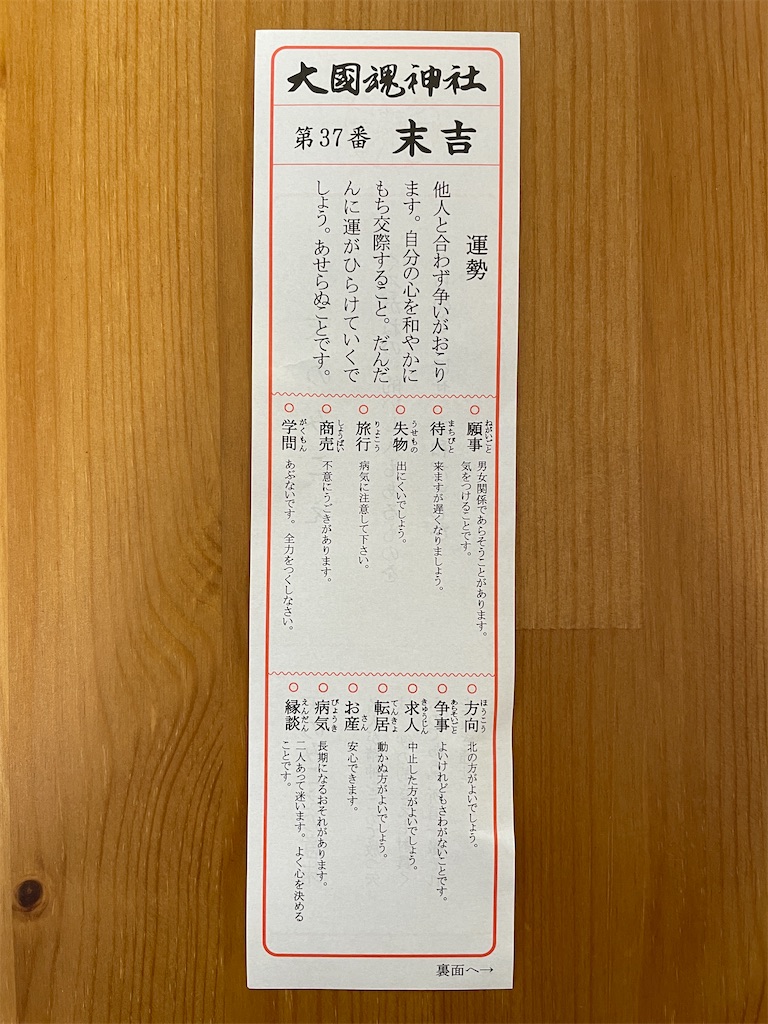 大國魂神社
第37番 末吉
運勢
他人と合わず争いがおこり
ます。自分の心を和やかに
もち交際すること。だんだ
んに運がひらけていくで
しょう。あせらぬことです。
○願事 ねがいごと
男女関係であらそうことがあります。
気をつけることです。
○待人 まちびと
来ますが遅くなりましょう。
○失物 うせもの
出にくいでしょう。
○旅行 りょこう
病気に注意して下さい。
○商売 しょうばい
不意にうごきがあります。
○学問 がくもん
あぶないです。全力をつくしなさい。
○方向 ほうこう
北の方がよいでしょう。
○争事 あらそいごと
よいけれどもさわがないことです。
○求人 きゅうじん
中止した方がよいでしょう。
○転居 てんきょ
動かぬ方がよいでしょう。
○お産 さん
安心できます。
○病気 びょうき
長期になるおそれがあります。
○縁談 えんだん
二人あって迷います。よく心を決める
ことです。
裏面へ→